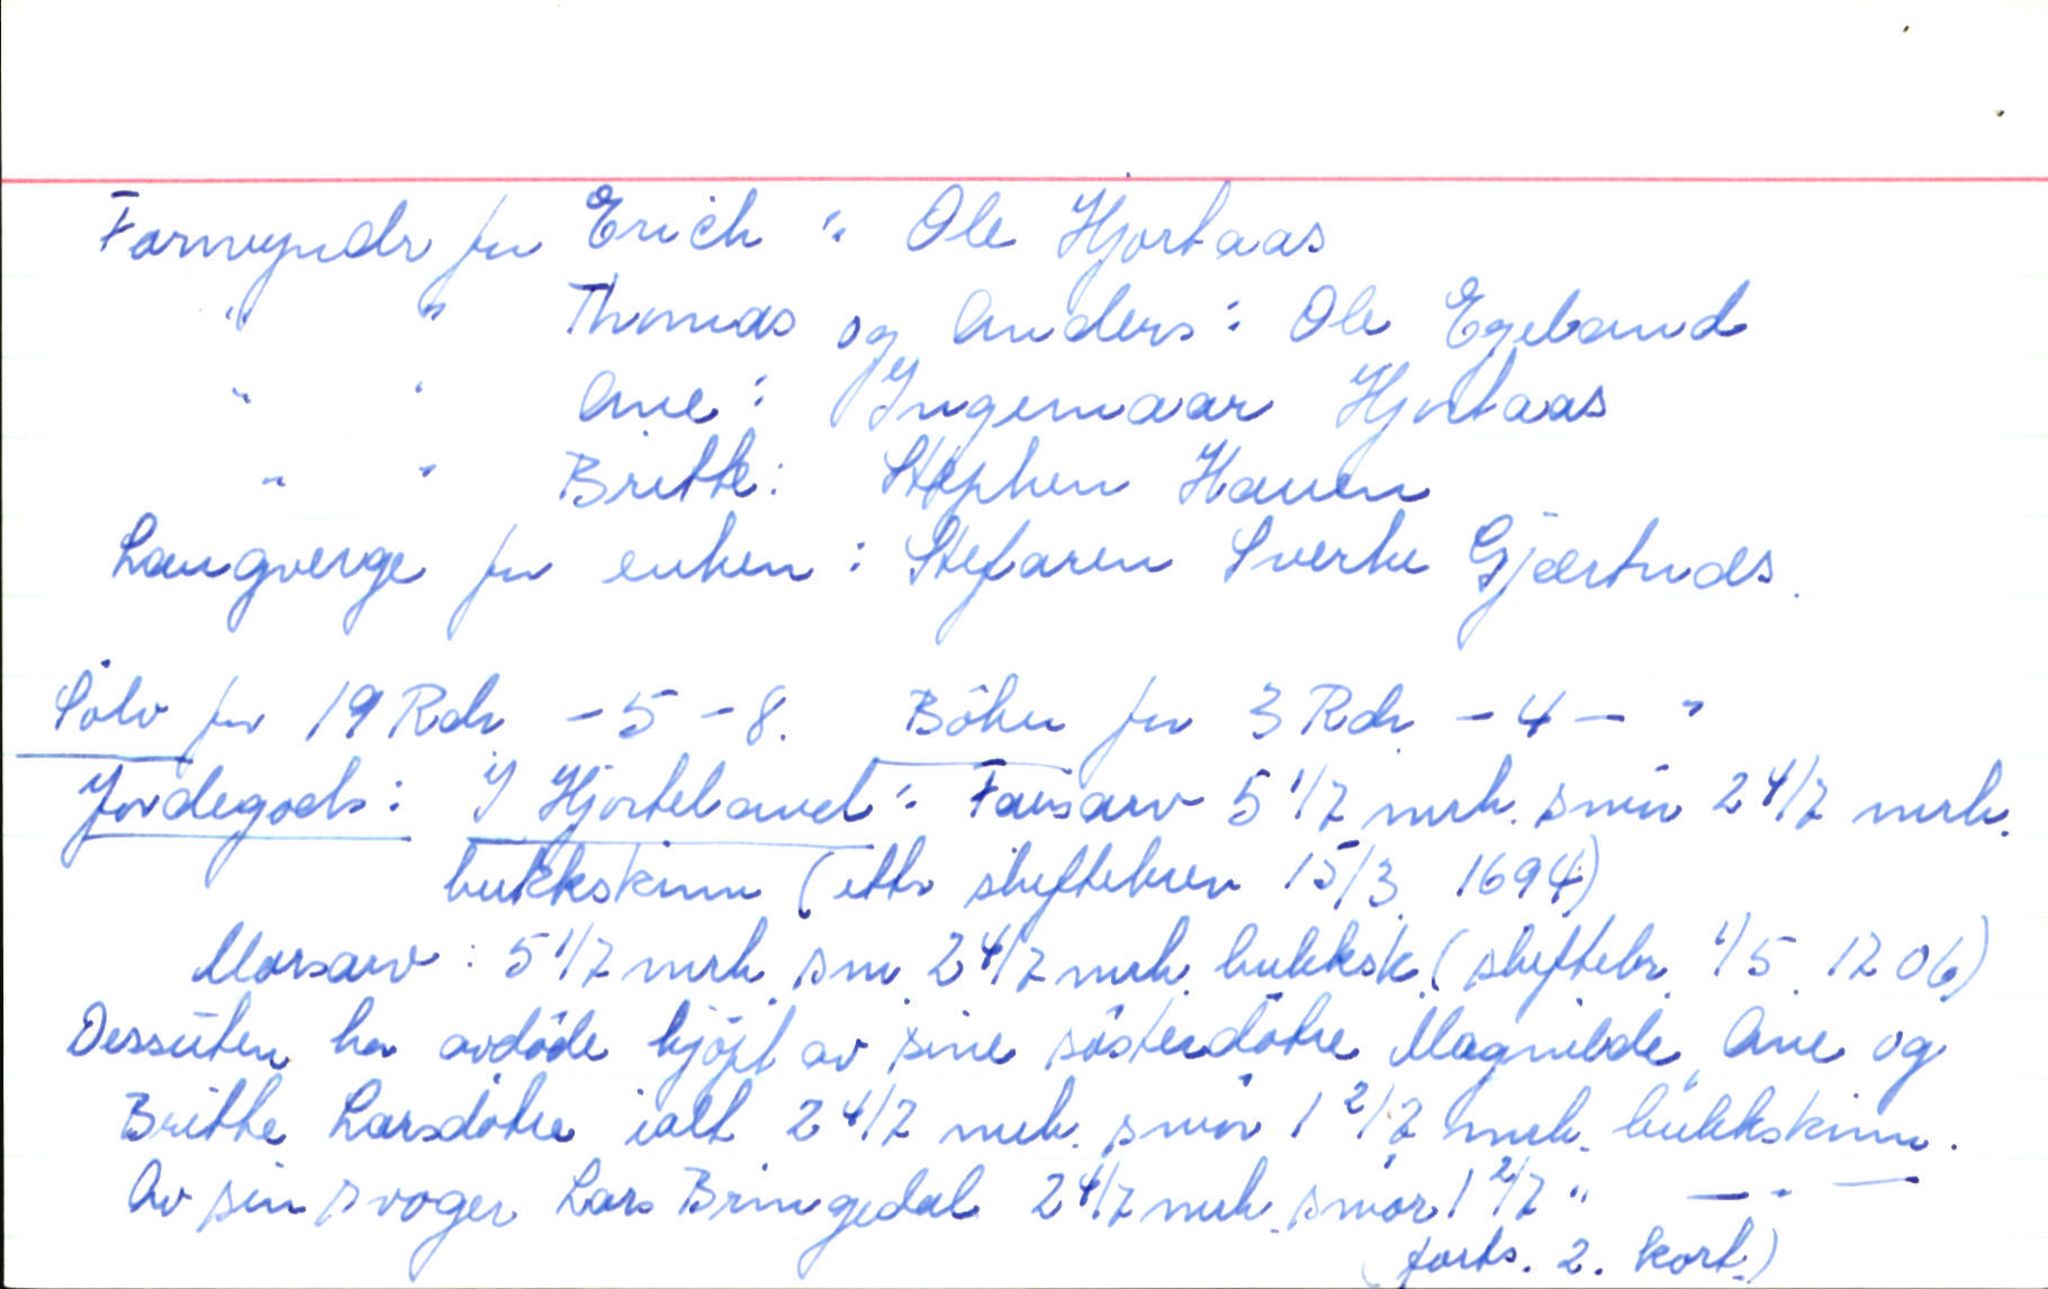 Formyndr for Erich : Ole Hjortaas
" " Thomas og Anders : Ole Egeland
" " Ane : Ingemaar Hjortaas
" " Britte : Stephen Hauen
Laugverge for enken : Stefaren Sverke Gjærtnæs.
Sölv for 19 Rdr - 5 - 8. Böker for 3 Rdr - 4 - "
Jordegods : I Hjorteland : Farsarv 5 1/7 mrk. smör 2 4/7 mrk.
bukkskinn (ettr skiftebrev 15/3 1694)
Morsarv : 5 1/7 mrk sm 2 4/7 mrk. bukksk. (skiftebr. 1/5 1706)
Dessuten har avdöde kjöpt av sine sösterdötre Magnilde, Ane og
Britte Larsdötre ialt 2 4/7 mrk. smör 1 2/7 mrk. bukkskinn.
Av sin svoger Lars Bringedal 2 4/7 mrk. smör 1 2/7 " — " —
(forts. 2. kort.)